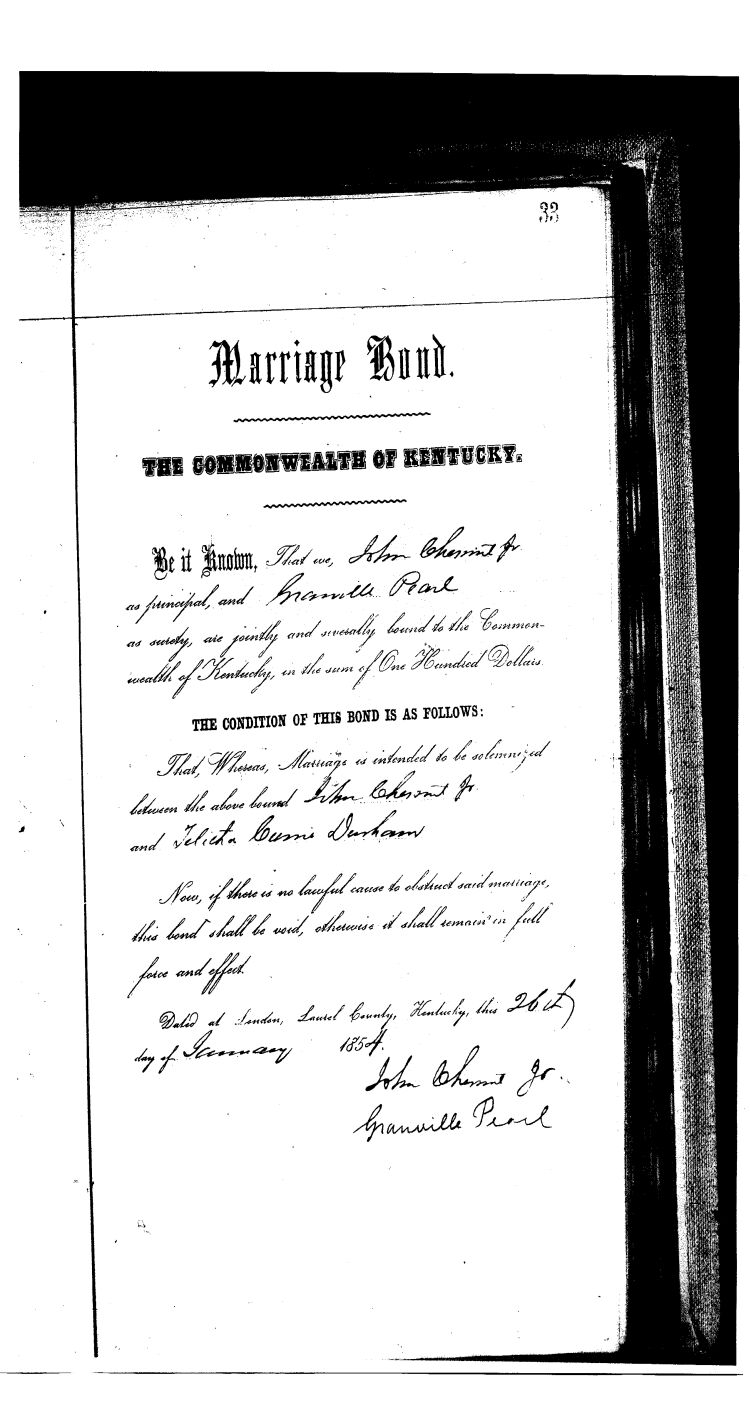 33
Marriage Bond.
THE COMMONWEALTH OF KENTUCKY.
Be it Known, That we, John Chesnut Jr
as principal, and Granville Pearl
as surety, are jointly and severally bound to the Common-
wealth of Kentucky, in the sum of One Hundred Dollars.
THE CONDITION OF THIS BOND IS AS FOLLOWS:
That, Whereas, Marriage is intended to be solemnized
between the above bound John Chesnut Jr
and Durham
Now, if there is no lawful cause to obstruct said marriage,
this bond shall be void, otherwise it shall remain in full
force and effect.
Dated at London, Laurel County, Kentucky, this 26th
day of January 1854.
John Chesnut Jr.
Granville Pearl